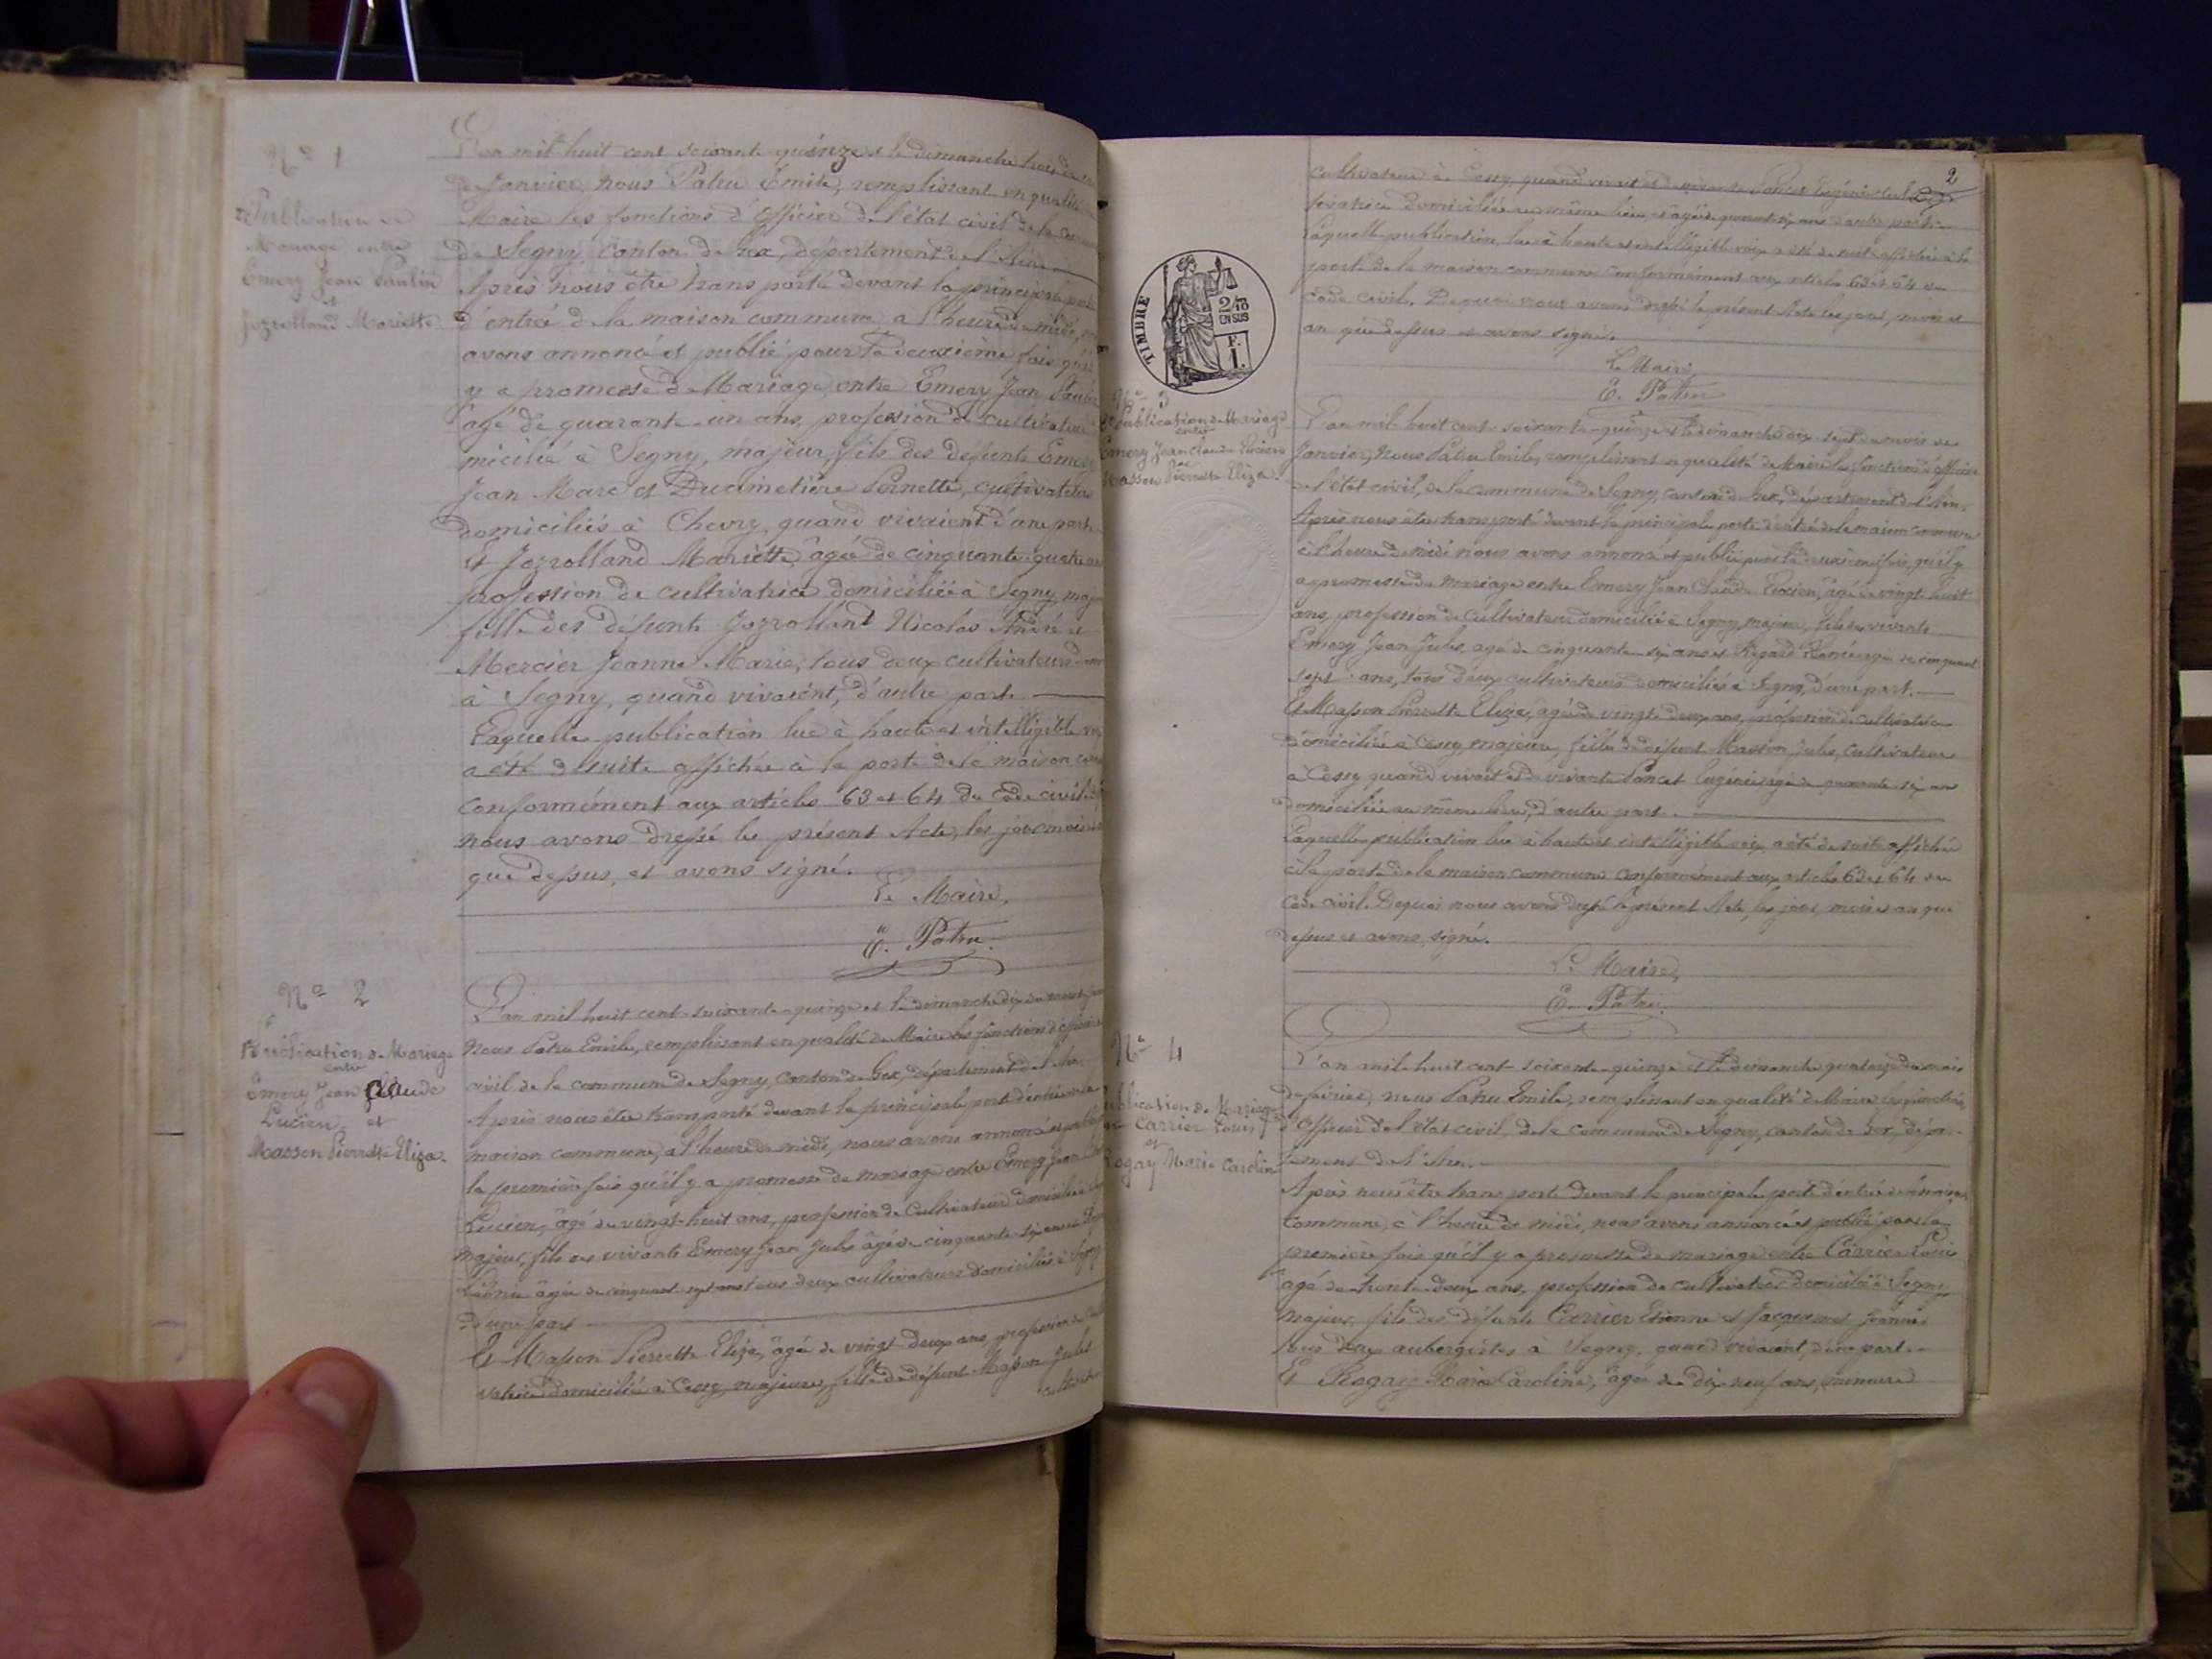 Nº 1
2e Publication de
Mariage entre
Emery Jean Paulin
et
Jozrolland Mariette
L'an mil huit cent soixante quinze et le dimanche trois du
de Janvier, nous Patru Emile, remplissant en qualité
Maire les fonctions d'officier de l'état civil de la
de Segny, canton de Gex, département de l'Ain.
Après nous être transporté devant la principale porte
d'entrée de la maison commune, à l'heure de midi,
avons annoncé et publié pour la deuxième fois qu'il
y a promesse de Mariage entre Emery Jean Paulin
âgé de quarante-un ans, profession de cultivateur
micilié à Segny, majeur, fils des défunts Emery
Jean Marc et Ducimetière Pernette, cultivateurs
domiciliés à Chevry, quand vivaient d'une part.
Et Jozrolland Mariette, âgée de cinquante-quatre
profession de cultivatrice domiciliée à Segny, maj
fille des défunts Jozrolland Nicolas André et
Mercier Jeanne Marie, tous deux cultivateurs
à Segny, quand vivaient, d'autre part.
Laquelle publication lue à haute et intelligible
a été de suite affichée à la porte de la maison
conformément aux articles 63 et 64 du Code civil.
nous avons dressé le présent Acte, les jour, mois
que dessus, et avons signé.
Le Maire,
E. Patru.
Nº 2
Publication de Mariage
entre
Emery Jean Claude
Lucien et
Masson Pierrette Eliza.
L'an mil huit cent soixante-quinze et le dimanche dix du mois
Nous Patru Emile, remplissant en qualité de Maire les fonctions d'officier
civil de la commune de Segny, canton de Gex, département de l'Ain.
Après nous être transporté devant la principale porte d'entrée de la
maison commune, à l'heure de midi, nous avons annoncé et publié
la première fois qu'il y a promesse de mariage entre Emery Jean
Lucien, âgé de vingt-huit ans, profession de Cultivateur domicilié
majeur, fils des vivants Emery Jean Jules âgé de cinquante-six ans et
âgée de cinquant sept ans tous deux cultivateurs domiciliés à Segny
d'une part
Et Masson Pierrette Eliza, âgé de vingt-deux ans, profession de
vatrice domiciliée à Cessy, majeure, fille de défunt Masson Jules
2
cultivateur à Cessy, quand vivait et de vivante Poncet Eugénie
tivatrice domiciliée au même lieu et âgée de quarante six ans d'autre part.
Laquelle publication lue à haute et intelligible voix a été de suite affichée à la
porte de la maison commune conformément aux articles 63 et 64 du
Code civil. De quoi nous avons dressé le présent Acte les jour, mois et
an que dessus et avons signé.
Le Maire,
E. Patru
TIMBRE
2/10
EN SUS
F.
1.
Nº 3
2e Publication de Mariage
entre
Emery Jean Claude Lucien
et
Masson Pierrette Eliza.
L'an mil huit cent soixante-quinze et le dimanche dix-sept du mois de
Janvier, Nous Patru Emile, remplissant en qualité de Maire les fonctions d'officier
de l'état civil, de la commune de Segny, canton de Gex, département de l'Ain.
Après nous être transporté devant la principale porte d'entrée de la maison commune
à l'heure de midi nous avons annoncé et publié pour la deuxième fois, qu'il y
a promesse de mariage entre Emery Jean Claude Lucien, âgé de vingt-huit
ans, profession de Cultivateur domicilié à Segny, majeur, fils des vivants
Emery Jean Jules, âgé de cinquante-six ans et âgée de cinquant
sept ans, tous deux cultivateurs domiciliés à Segny, d'une part.
Et Masson Pierrette Eliza, âgé de vingt-deux ans, profession de cultivatrice
domiciliée à Cessy, majeure, fille de défunt Masson Jules, cultivateur
à Cessy quand vivait et de vivante Poncet Eugénie âgée de quarante-six ans
domiciliée au même lieu, d'autre part.
Laquelle publication lue à haute et intelligible voix, a été de suite affichée
à la porte de la maison commune conformément aux articles 63 et 64 du
Code civil. De quoi nous avons dressé le présent Acte, les jour, mois et an que
dessus et avons signé.
Le Maire,
E. Patru.
Nº 4
Publication de Mariage
Carrier Louis
et
Rogay Marie Caroline
L'an mil huit cent-soixante-quinze et le dimanche quatorze du mois
de février, nous Patru Emile, remplissant en qualité de Maire les fonctions
d'officier de l'état civil, de la commune de Segny, canton de Gex, dépar-
tement de l'Ain.
Après nous être transporté devant la principale porte d'entrée de la maison
commune, à l'heure de midi, nous avons annoncé et publié pour la
première fois qu'il y a promesse de mariage entre Carrier Louis
âgé de trente-deux ans, profession de cultivateur domicilié à Segny
majeur, fils des défunts Carrier Etienne et Jacquemet Jeanne
tous deux aubergistes à Segny, quand vivaient, d'une part.
Et Rogay Marie Caroline, âgée de dix neuf ans, mineure